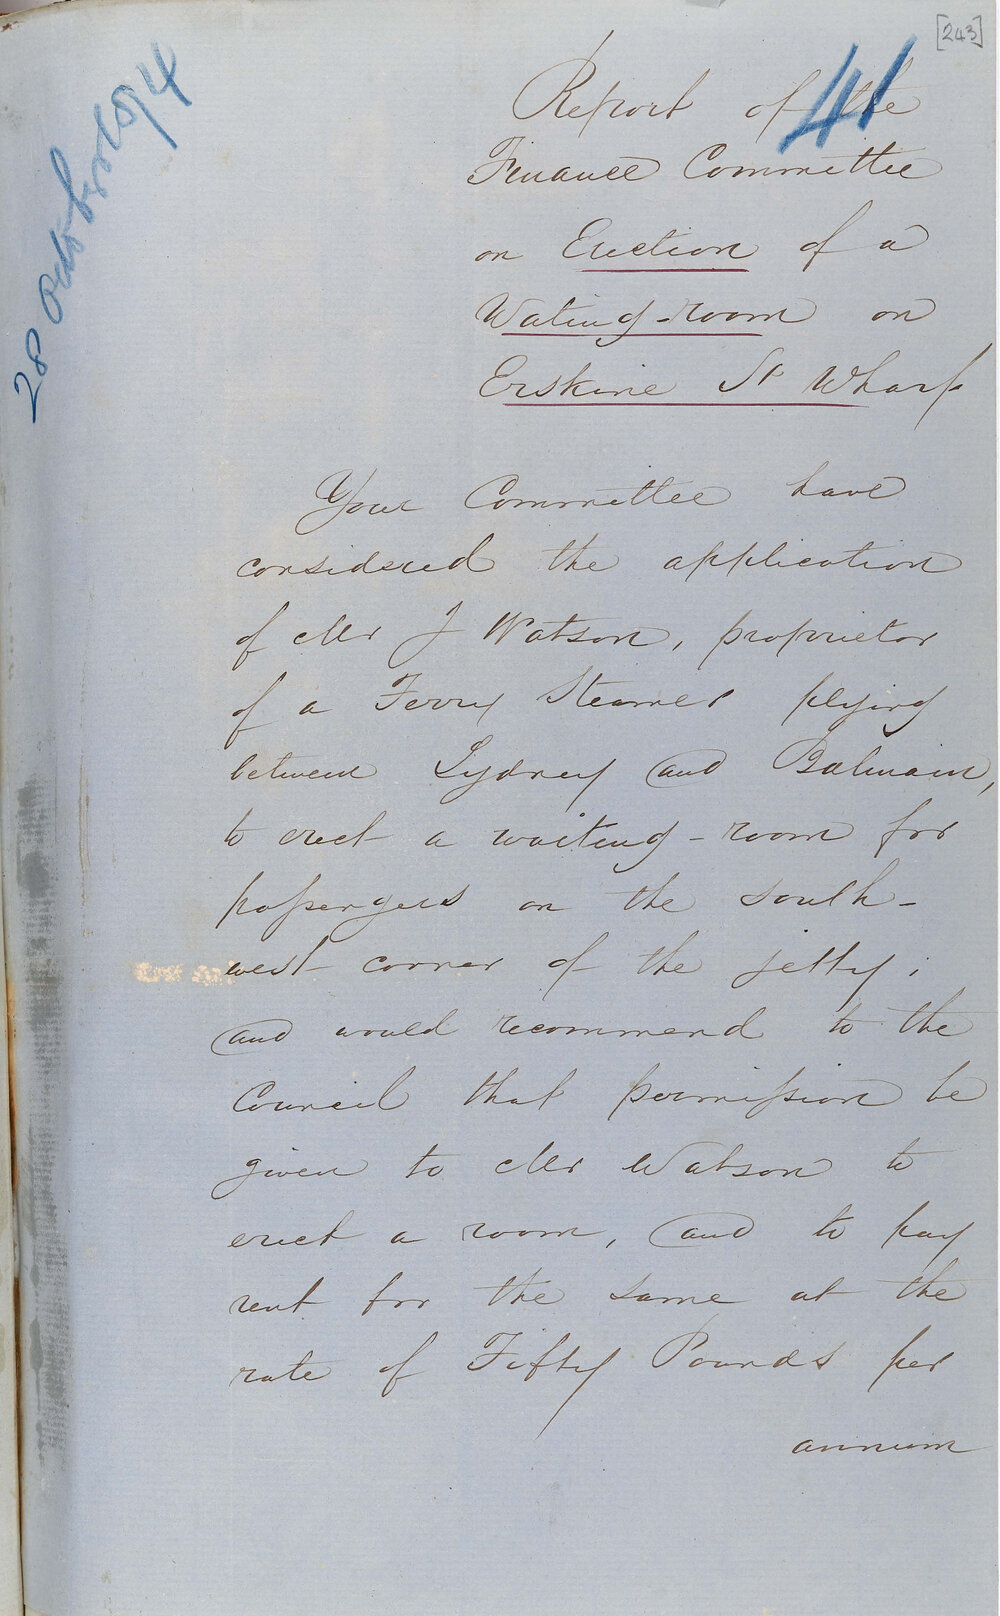 [243]
41
28 October 1874
Report of the
Finance Committee
on Erection of a
Wating-room on
Erskine St Wharf
Your Committee have
considered the application
of Mr J Watson, proprietor
of a Ferry Steamer plying
between Sydney and Balmain,
to erect a waiting-room for
passengers on the south-
west corner of the jetty;
and would recommend to the
Council that permission be
given to Mr Watson to
erect a room, and to pay
rent for the same at the
rate of Fifty Pounds per
annum